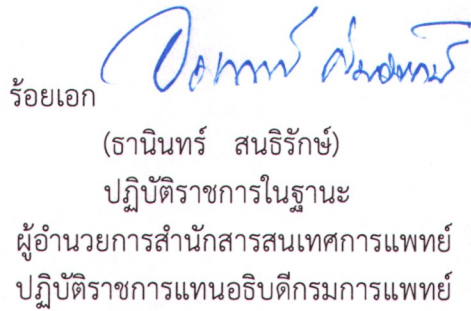 ร้อยเอก
(ธานินทร์ สนธิรักษ์)
ปฏิบัติราชการในฐานะ
ผู้อำนวยการสำนักสารสนเทศการแพทย์
ปฏิบัติราชการแทนอธิบดีกรมการแพทย์